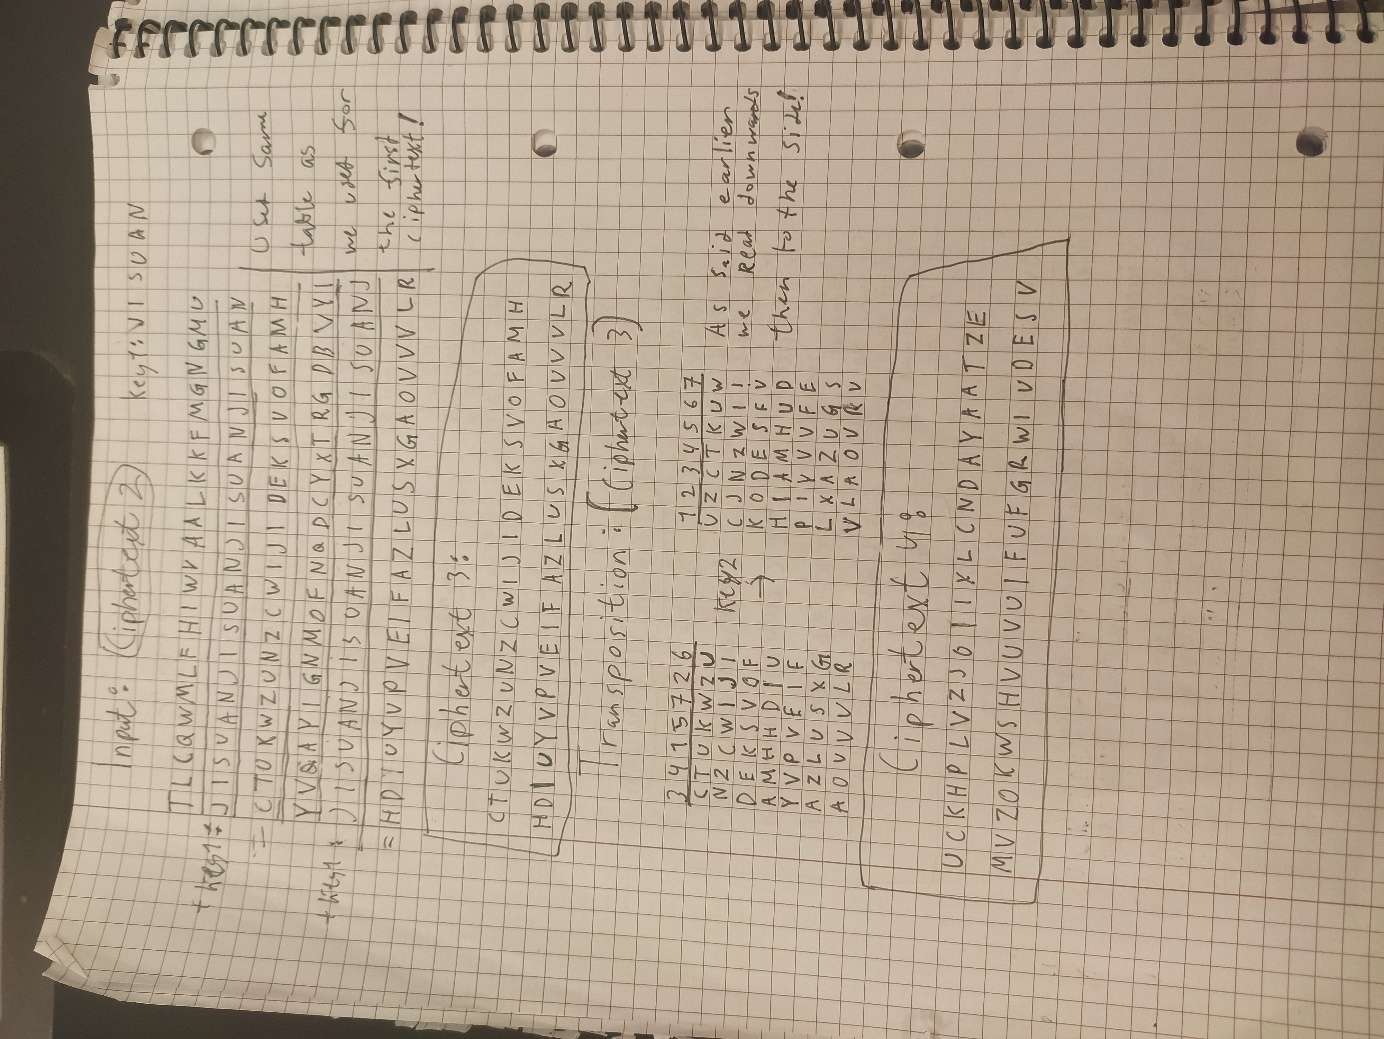 Input: (Ciphertext 2)   Key1: JISUAN
TLCQWMLFHIWVAALKKFMGNGMU
+ Key1: JISUANJISUANJISUANJISUAN
= CTUKWZUNZCWIJIDEKSVOFAMH
YVQAYIGNMOFNQDCYXTRGDBVYI
+ Key1: JISUANJISUANJISUANJISUANJ
= HDIUYVPVEIFAZLUSXGAOVVVLR
Use same
table as
we used for
the first
ciphertext!
Ciphertext 3:
CTUKWZUNZCWIJIDEKSVOFAMH
HDIUYVPVEIFAZLUSXGAOVVVLR
Transposition: (Ciphertext 3)
3415726
CTUKWZU
NZCWIJI
DEKSVOF
AMHHDIU
YVPVEIF
AZLUSXG
AOVVVLR
Key2 →
1234567
UZCTKUW
CJNZWII
KODESFV
HIAMHUD
PIYVVFE
LXAZUGS
VLAOVRV
As said earlier
we read downwards
then to the side!
Ciphertext 4:
UCKHPLVZJOIIXLCNDAYAATZE
MVZOKWSHVUVUIFUFGRWIVDESV